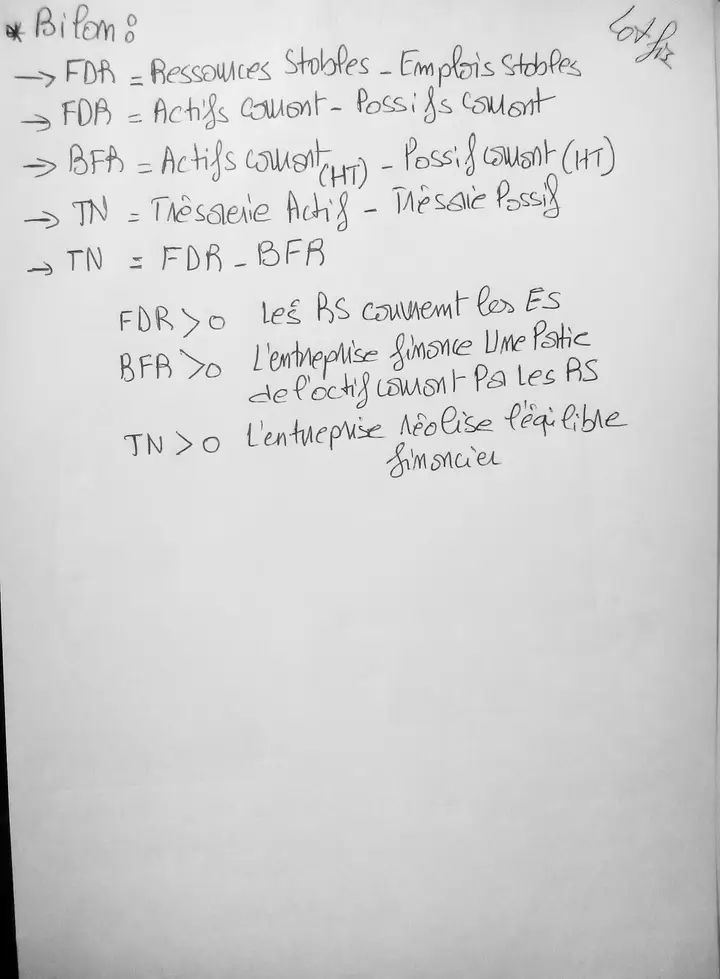 * Bilan :
→ FDR = Ressources Stables - Emplois Stables
→ FDR = Actifs courant - Passifs courant
→ BFR = Actifs courant (HT) - Passif courant (HT)
→ TN = Trésorerie Actif - Trésorie Passif
→ TN = FDR - BFR
FDR > 0 les RS couvrent les ES
BFR > 0 L'entreprise finance Une Patie
de l'actif courant Par les RS
TN > 0 L'entreprise réalise l'équilibre
financier